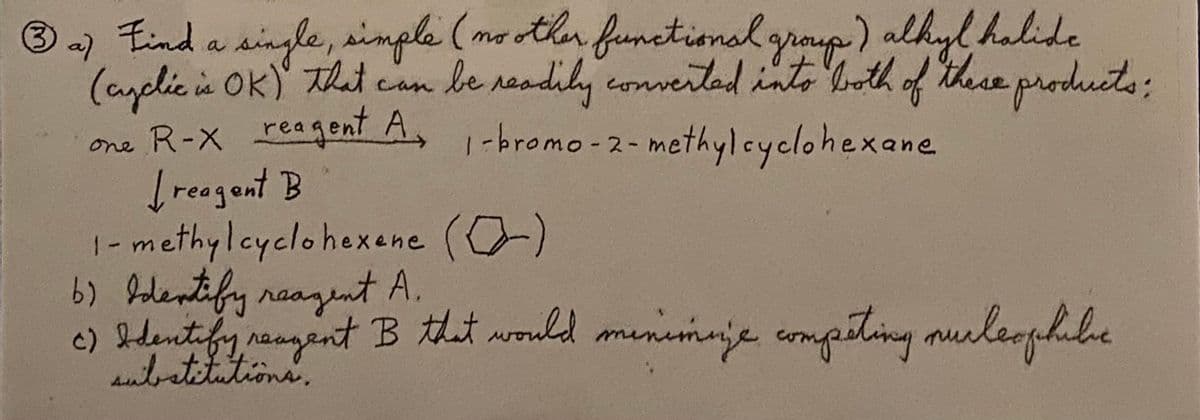 ③ a) Find a single, simple (no other functional group) alkyl halide
(cyclic is OK) that can be readily converted into both of these products:
one R-X reagent A 1-bromo-2-methylcyclohexane
↓ reagent B
1-methylcyclohexene ( )
b) Identify reagent A.
c) Identify reagent B that would minimize competing nucleophilic
substitutions.